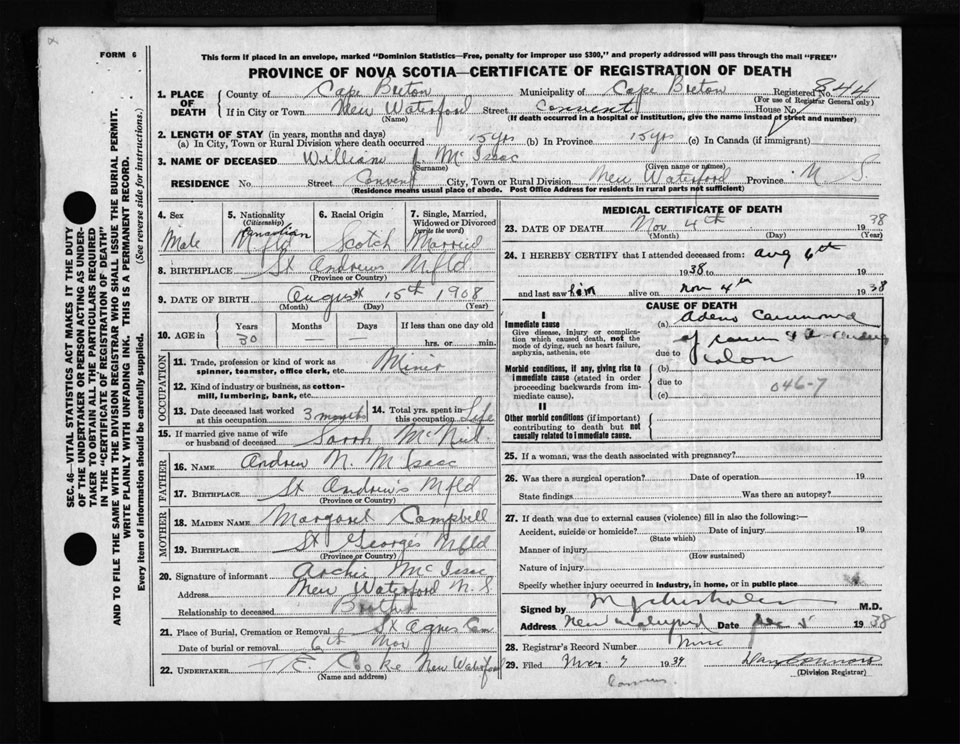 FORM 6
This form if placed in an envelope, marked "Dominion Statistics—Free, penalty for improper use $300," and properly addressed will pass through the mail "FREE"
PROVINCE OF NOVA SCOTIA—CERTIFICATE OF REGISTRATION OF DEATH
SEC. 46—VITAL STATISTICS ACT MAKES IT THE DUTY
OF THE UNDERTAKER OR PERSON ACTING AS UNDER-
TAKER TO OBTAIN ALL THE PARTICULARS REQUIRED
IN THE "CERTIFICATE OF REGISTRATION OF DEATH"
AND TO FILE THE SAME WITH THE DIVISION REGISTRAR WHO SHALL ISSUE THE BURIAL PERMIT.
WRITE PLAINLY WITH UNFADING INK. THIS IS A PERMANENT RECORD.
Every item of information should be carefully supplied. (See reverse side for instructions.)
1. PLACE OF DEATH County of Cape Breton Municipality of Cape Breton Registered No. 844
(For use of Registrar General only)
If in City or Town New Waterford Street Convent House No.
(Name) (If death occurred in a hospital or institution, give the name instead of street and number)
2. LENGTH OF STAY (in years, months and days)
(a) In City, Town or Rural Division where death occurred 15 yrs (b) In Province 15 yrs (c) In Canada (if immigrant)
3. NAME OF DECEASED William J. McIsaac
(Surname) (Given name or names)
RESIDENCE No. Street Convent City, Town or Rural Division New Waterford Province N S.
(Residence means usual place of abode. Post Office Address for residents in rural parts not sufficient)
4. Sex Male
5. Nationality (Citizenship) Canadian Nfld
6. Racial Origin Scotch
7. Single, Married, Widowed or Divorced (write the word) Married
8. BIRTHPLACE St Andrews Nfld
(Province or Country)
9. DATE OF BIRTH August 15th 1908
(Month) (Day) (Year)
10. AGE in Years 30 Months — Days — If less than one day hrs. or min.
OCCUPATION
11. Trade, profession or kind of work as spinner, teamster, office clerk, etc. Miner
12. Kind of industry or business, as cotton-mill, lumbering, bank, etc.
13. Date deceased last worked at this occupation 3 months
14. Total yrs. spent in this occupation Life
15. If married give name of wife or husband of deceased Sarah McNeil
FATHER
16. NAME Andrew N. McIsaac
17. BIRTHPLACE St Andrew's Nfld
(Province or Country)
MOTHER
18. MAIDEN NAME Margaret Campbell
19. BIRTHPLACE St Georges Nfld
(Province or Country)
20. Signature of informant Archie McIsaac
Address New Waterford N.S
Relationship to deceased Brother
21. Place of Burial, Cremation or Removal St Agnes Cem
Date of burial or removal 6th Nov
22. UNDERTAKER T E Cooke New Waterford
(Name and address)
MEDICAL CERTIFICATE OF DEATH
23. DATE OF DEATH Nov 4th 1938
(Month) (Day) (Year)
24. I HEREBY CERTIFY that I attended deceased from: Aug 6th
1938 to 19
and last saw him alive on Nov 4th 1938
CAUSE OF DEATH
I
Immediate cause
Give disease, injury or complication which caused death, not the mode of dying, such as heart failure, asphyxia, asthenia, etc
(a) Adeno Carcinoma
of
due to colon
Morbid conditions, if any, giving rise to immediate cause (stated in order proceeding backwards from immediate cause).
(b)
due to
(c)
046-7
II
Other morbid conditions (if important) contributing to death but not causally related to immediate cause.
25. If a woman, was the death associated with pregnancy?
26. Was there a surgical operation? Date of operation 19
State findings Was there an autopsy?
27. If death was due to external causes (violence) fill in also the following:—
Accident, suicide or homicide? Date of injury 19
(State which)
Manner of injury
(How sustained)
Nature of injury
Specify whether injury occurred in industry, in home, or in public place
Signed by M J Chisholm M.D.
Address New Waterford Date Dec 5 1938
28. Registrar's Record Number
29. Filed 7 1939
(Division Registrar)